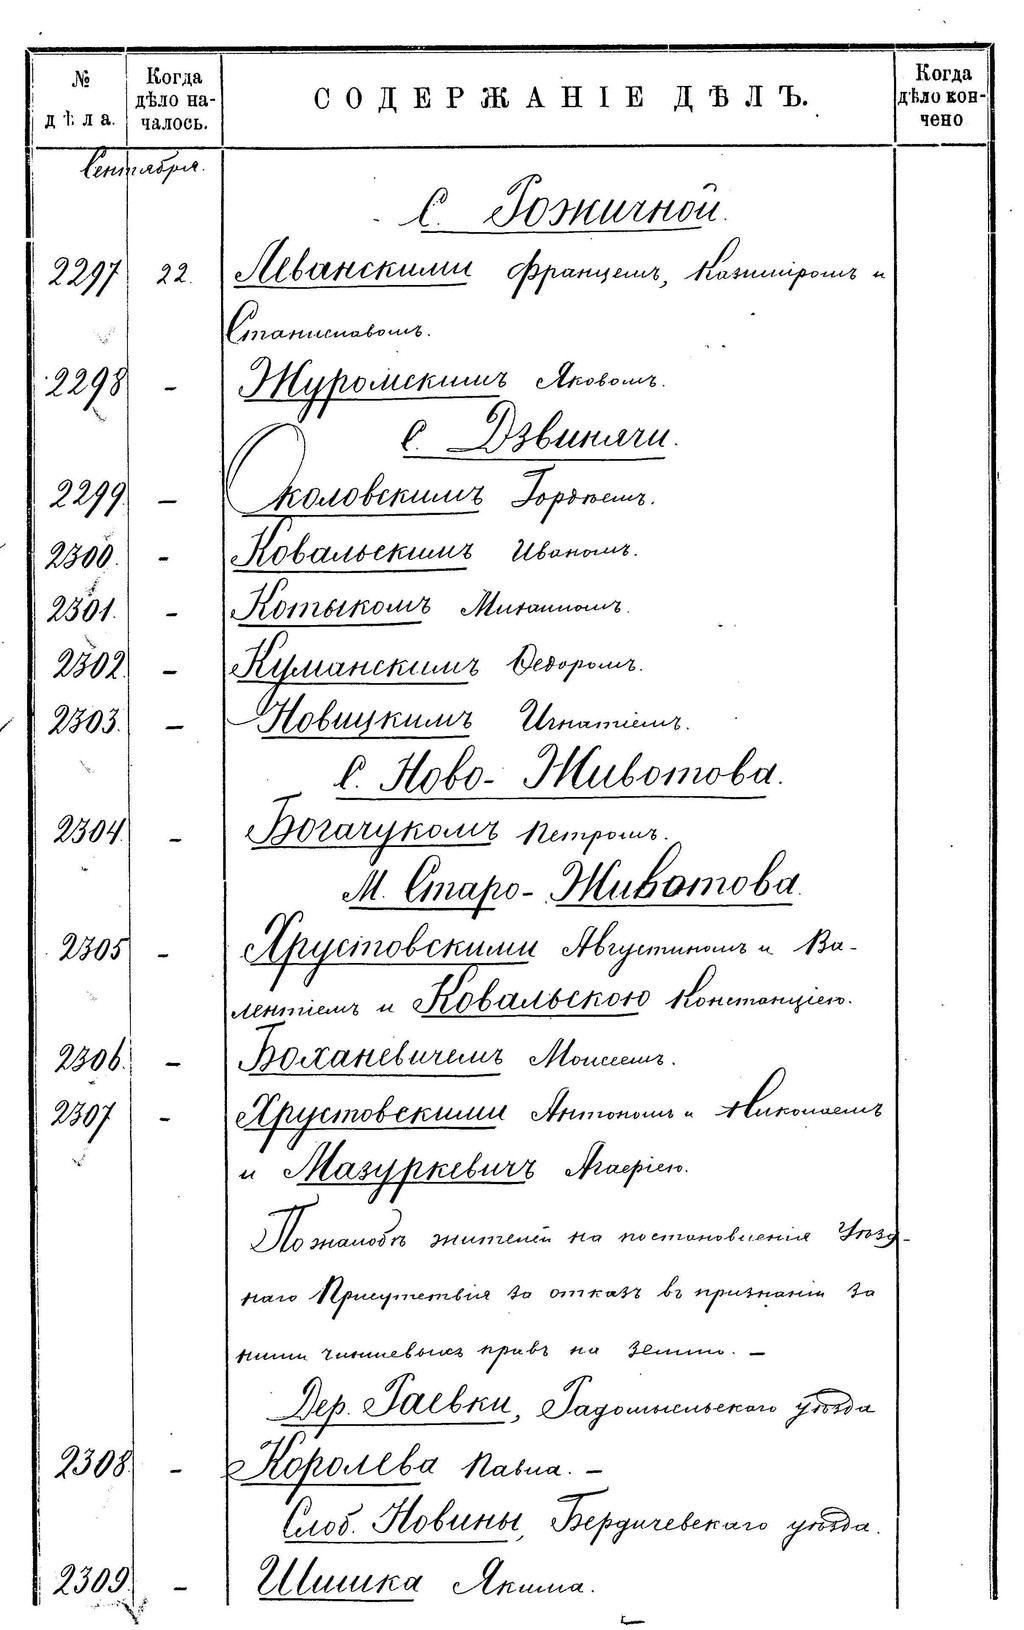 № дѣла.
Когда дѣло началось.
СОДЕРЖАНІЕ ДѢЛЪ.
Когда дѣло кончено
Сентября.
С. Рожичной.
2297 22. Леванскими Францемъ, Казиміромъ и
Станиславомъ.
2298 - Журомскимъ Яковомъ.
С. Дзвинячи.
2299 - Околовскимъ Гордѣемъ.
2300. - Ковальскимъ Иваномъ.
2301. - Котыкомъ Михаиломъ.
2302. - Куманскимъ Ѳедоромъ.
2303. - Новицкимъ Игнатіемъ.
С. Ново-Животова.
2304. - Богачукомъ Петромъ.
М. Старо-Животова.
2305 - Хрустовскими Августиномъ и Ва-
лентіемъ и Ковальскою Констанціею.
2306. - Боханевичемъ Моисеемъ.
2307 - Хрустовскими Антономъ и Николаемъ
и Мазуркевичъ Агафіею.
По жалобѣ жителей на постановленія Уѣзд-
наго Присутствія за отказъ въ признаніи за
ними чиншевыхъ правъ на землю. -
Дер. Раевки, Радомысльскаго уѣзда
2308. - Королева Павла. -
Слоб. Новины, Бердичевскаго уѣзда.
2309. - Шишка Якима.